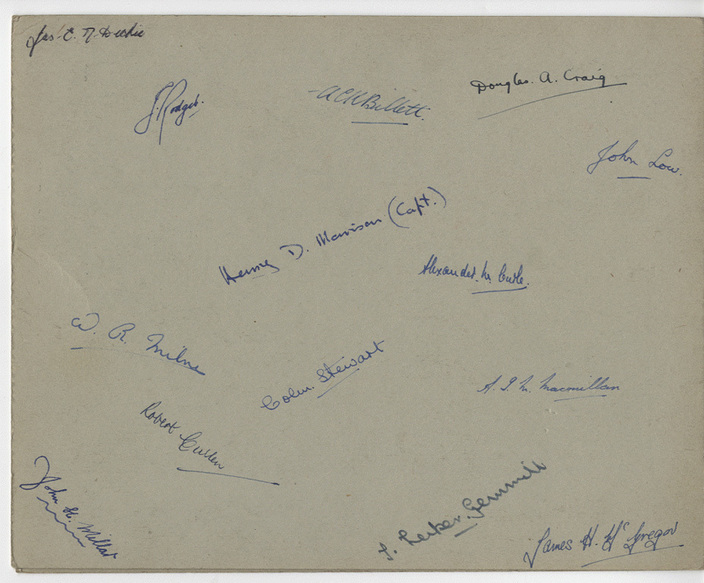 Jas. C. N.
J. Rodger.
A C K Billett.
Douglas. A. Craig.
John Low.
Henry D. Morrison (Capt.)
Alexander. M.
W. R. Milne
Colin Stewart
A. I. M. Macmillan
Robert Cullen
John H. Millar
J. Gemmill
James H. Mc Gregor